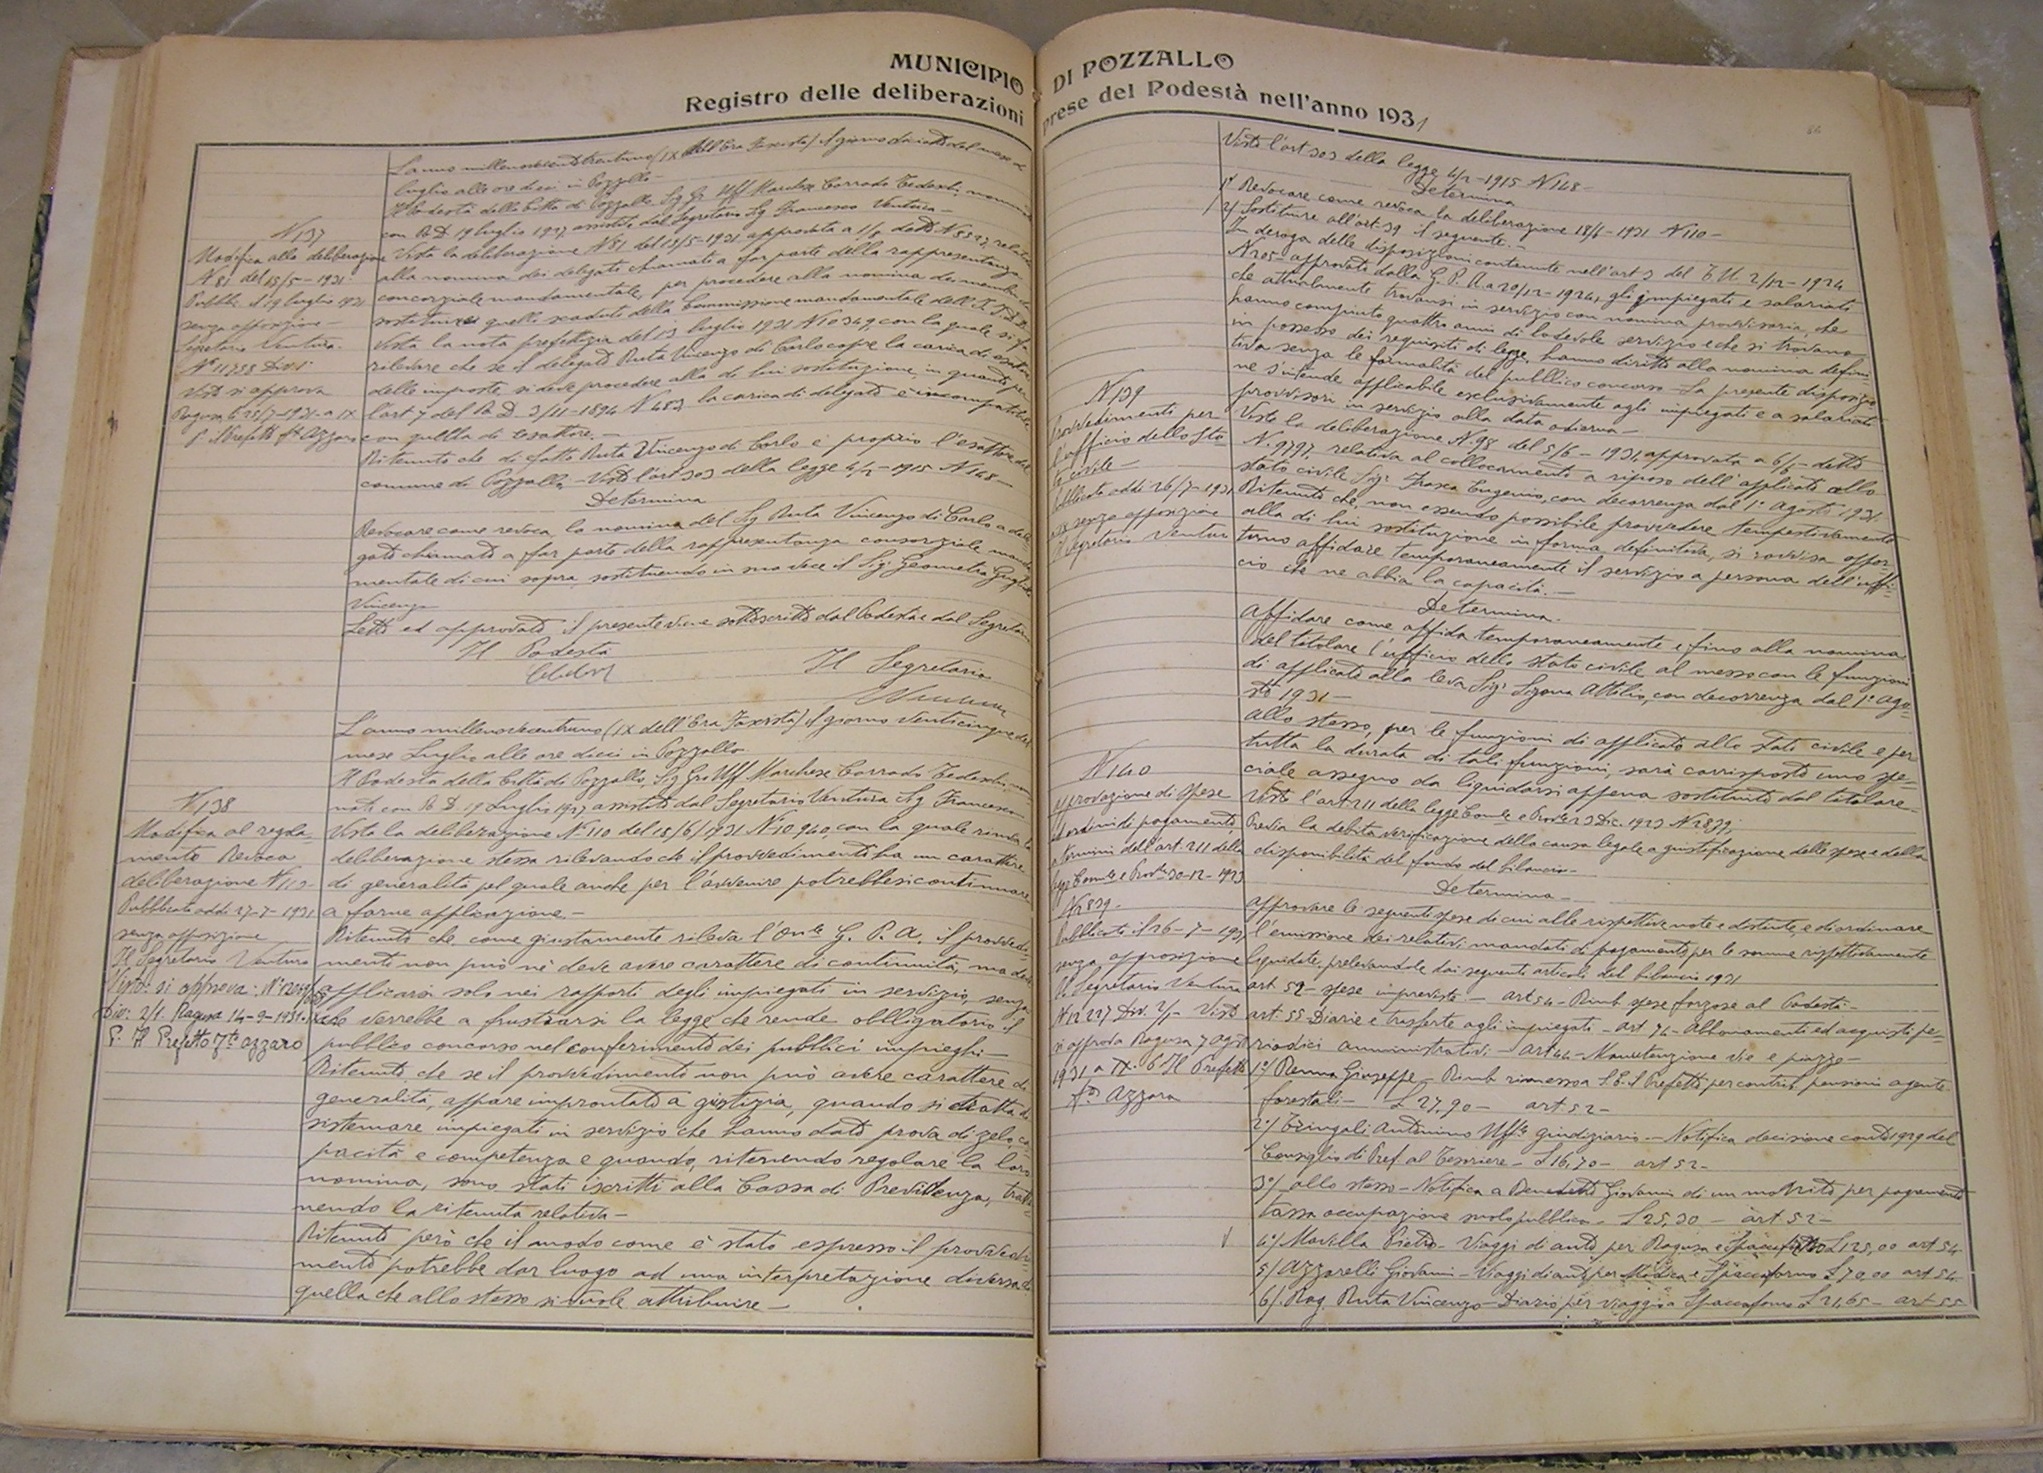 MUNICIPIO DI POZZALLO
Registro delle deliberazioni prese del Podestà nell'anno 1931
N 137
Modifica alla deliberazione
N 81 del 15/5-1931
Pubbl. il 19 luglio 1931
senza opposizione -
Segretario Ventura.
N° 11755 Div 1
Visto si approva
Ragusa li 25/7-1931-a IX
p. Il Prefetto fto Azzaro
L'anno millenovecentotrentuno (IX dell'Era Fascista) il giorno del mese di
luglio alle ore dieci in Pozzallo -
Il Podestà della Città di Pozzallo Sig. Gr. Uff. Marchese Corrado Tedeschi, nominato
con R. D. 19 luglio 1927 assistito dal Segretario Sig. Francesco Ventura -
Vista la deliberazione N 81 del 15/5-1931 approvata a detto N relativa
alla nomina dei delegati chiamati a far parte della rappresentanza
consorziale mandamentale, per procedere alla nomina dei membri
sostituire quelli scaduti della Commissione mandamentale dell'I.
Vista la nota prefettizia del 13 luglio 1931 N 10349, con la quale si fa
rilevare che se il delegato Ruta Vincenzo di Carlo copre la carica di esattore
delle imposte, si deve procedere alla di lui sostituzione, in quanto per
l'art 7 del R. D. 3/11-1894 N 483, la carica di delegato è incompatibile
con quella di esattore. -
Ritenuto che di fatti Ruta Vincenzo di Carlo è proprio l'esattore del
comune di Pozzallo - Visto l'art 303 della legge 4/2-1915 N 148 -
Determina
Revocare come revoca la nomina del Sig Ruta Vincenzo di Carlo a dele-
gato chiamato a far parte della rappresentanza consorziale manda-
mentale di cui sopra, sostituendo in sua vece il Sig. Geometra
Vincenzo
Letto ed approvato il presente viene sottoscritto dal Podestà e dal Segretario
Il Podestà
Il Segretario
N 138
Modifica al regola-
mento Revoca
deliberazione N 110 -
Pubblicato addì 27-7-1931
senza opposizione
Il Segretario Ventura
Visto: si approva: N°
Div: 2/1. Ragusa 14-9-1931.
p. Il Prefetto fto Azzaro
L'anno millenovecentouno (IX dell'Era Fascista) il giorno venticinque del
mese Luglio alle ore dieci in Pozzallo
Il Podestà della Città di Pozzallo, Sig Gr Uff Marchese Corrado Tedeschi, nomi-
nato con R. D. 19 Luglio 1927 assistito dal Segretario Ventura Sig Francesco
Vista la deliberazione N° 110 del 18/6/1931 N° 10940, con la quale rinvia la
deliberazione stessa rilevando che il provvedimento ha un carattere
di generalità pel quale anche per l'avvenire potrebbesi continuare
a farne applicazione -
Ritenuto che come giustamente rileva l'On.le G. P. A. il provvedi-
mento non può nè deve avere carattere di continuità, ma deve
applicarsi solo nei rapporti degli impiegati in servizio, senza
che verrebbe a frustrarsi la legge che rende obbligatorio il
pubblico concorso nel conferimento dei pubblici impieghi -
Ritenuto che se il provvedimento non può avere carattere di
generalità, appare improntato a giustizia, quando si tratta di
sistemare impiegati in servizio che hanno dato prova di zelo, ca-
pacità e competenza e quando, ritenendo regolare la loro
nomina, sono stati iscritti alla Cassa di Previdenza, tratte-
nendo la ritenuta relativa -
Ritenuto però che il modo come è stato espresso il provvedi-
mento potrebbe dar luogo ad una interpretazione diversa da
quella che allo stesso si vuole attribuire -
Visto l'art 303 della legge 4/2-1915 N 148 -
Determina
1° Revocare come revoca la deliberazione 18/6-1931 N 110 -
2/ Sostituire all'art. 39 il seguente: -
In deroga delle disposizioni contenute nell'art 3 del T. U. 2/12-1924
N 205 approvato dalla G. P. A. a 20/12-1924, gli impiegati e salariati
che attualmente trovansi in servizio con nomina provvisoria, che
hanno compiuto quattro anni di lodevole servizio e che si trovano
in possesso dei requisiti di legge, hanno diritto alla nomina defini-
tiva senza le formalità del pubblico concorso - La presente disposizio
ne s'intende applicabile esclusivamente agli impiegati e a salariati
provvisori in servizio alla data odierna -
N 139
Provvedimenti per
l'ufficio dello Sta-
to civile -
Pubblicato addì 26/7-1931
senza opposizione
Il Segretario Ventura
Vista la deliberazione N. 98 del 5/6-1931, approvata a 6/6-detto
N. 9797, relativa al collocamento a riposo dell'applicato allo
stato civile Sig: Frasca Eugenio, con decorrenza dal 1° agosto 1931
Ritenuto che, non essendo possibile provvedere tempestivamente
alla di lui sostituzione in forma definitiva, si ravvisa oppor-
tuno affidare temporaneamente il servizio a persona dell'uffi-
cio che ne abbia la capacità. -
Determina.
Affidare come affida temporaneamente e fino alla nomina
del titolare l'ufficio dello stato civile al messo con le funzioni
di applicato alla leva Sig: Sigona Attilio, con decorrenza dal 1° ago-
sto 1931 -
Allo stesso, per le funzioni di applicato allo stato civile e per
tutta la durata di tali funzioni, sarà corrisposto uno spe-
ciale assegno da liquidarsi appena sostituito dal titolare -
N 140
Approvazione di spese
ed ordini di pagamento,
a termini dell'art. 211 della
legge Com.le e Prov.le 30-12-1923
N 2839 -
Pubblicato il 26-7-1931
senza opposizione
Il Segretario Ventura
N 12227 Div. 2/1 - Visto
si approva Ragusa 7 agosto
1931 a IX. p Il Prefetto
fto Azzaro
Visto l'art. 211 della legge Com.le e Prov.le 23 Dic. 1923 N 2839;
Previa la debita verificazione della causa legale a giustificazione delle spese e della
disponibilità del fondo del bilancio -
Determina -
Approvare le seguenti spese di cui alle rispettive note e distinte, e di ordinare
l'emissione dei relativi mandati di pagamento per le somme rispettivamente
liquidate, prelevandole dai seguenti articoli del bilancio 1931
art 52 - spese impreviste - art 54 - Rimb. spese forzose al Podestà -
art. 55 Diarie e trasferte agli impiegati - art 74 - Abbonamenti ed acquisti pe-
riodici amministrativi - art 44 - Manutenzione vie e piazze -
1°/ Renna Giuseppe - Rimb. rimessa a S. E. il Prefetto per contrib. pensioni agente
forestali - £ 27,90 - art 52 -
2°/ Tringali Antonino Uff.le giudiziario - Notifica decisione conto 1929 del
Consiglio di Pref. al Tesoriere - £ 16,70 - art 52 -
3°/ allo stesso - Notifica a Benedetto Giovanni di un per pagamento
tassa occupazione suolo pubblico - £ 25,30 - art. 52 -
4°/ Mavilla Pietro - Viaggi di auto per Ragusa e Spaccaforno £ 125,00 art 54
5/ Azzarelli Giovanni - Viaggi di auto per Modica e Spaccaforno £ 70,00 art 54
6/ Rag. Ruta Vincenzo - Diario per viaggio a Spaccaforno £ 21,65 - art 55